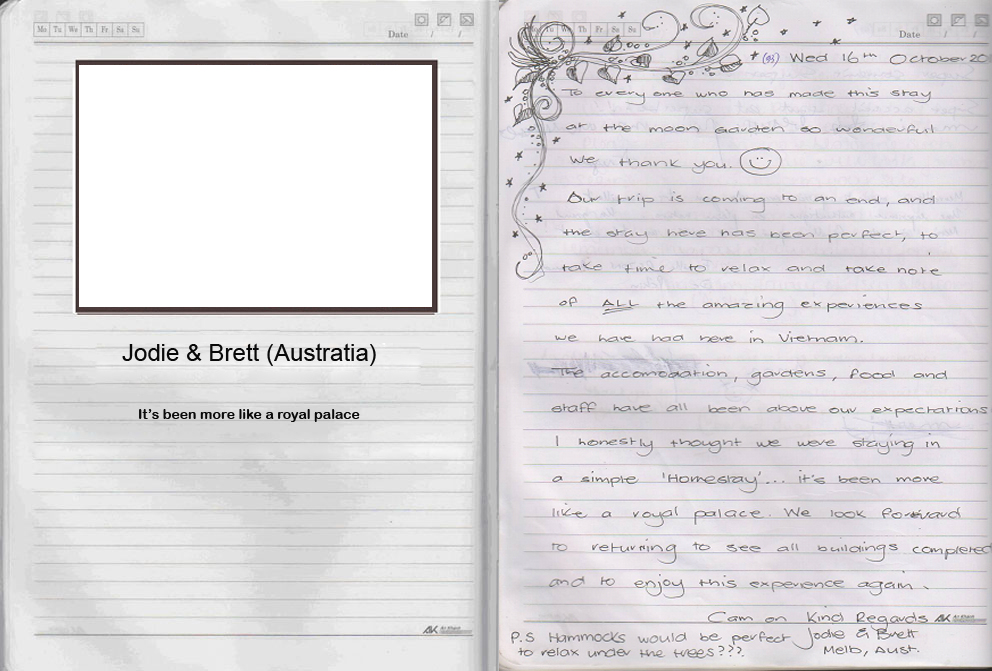 Mo Tu We Th Fr Sa Su
Date / /
Jodie & Brett (Austratia)
It's been more like a royal palace
Mo Tu We Th Fr Sa Su
Date / /
(93) Wed 16th October 20
To everyone who has made this stay
at the moon garden so wonderful
we thank you.
Our trip is coming to an end, and
the stay here has been perfect, to
take time to relax and take note
of ALL the amazing experiences
we have had here in Vietnam.
The accomodation, gardens, food and
staff have all been above our expectations
I honestly thought we were staying in
a simple 'Homestay'... it's been more
like a royal palace. We look forward
to returning to see all buildings completed
and to enjoy this experience again.
Cam on Kind Regards
Jodie & Brett
Melb, Aust.
P.S Hammocks would be perfect
to relax under the trees???